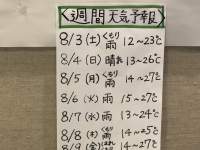 〈週間天気予報〉
8/3(土) くもり 雨 12〜23℃
8/4(日) 晴れ 13〜26℃
8/5(月) くもり 雨 14〜27℃
8/6(火) 雨 15〜27℃
8/7(水) 雨 13〜24℃
8/8(木) くもり 雨 14〜25℃
8/9(金) 雨 14〜27℃